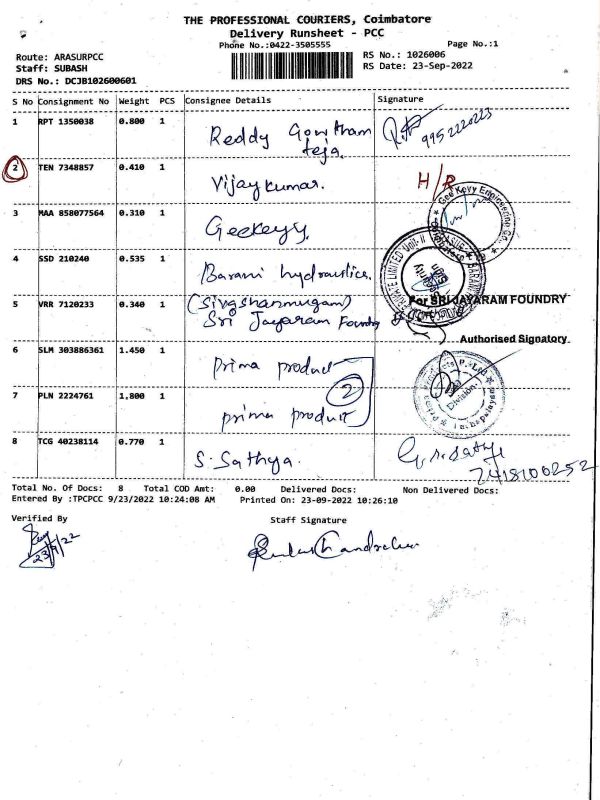 THE PROFESSIONAL COURIERS, Coimbatore
Delivery Runsheet - PCC
Phone No.:0422-3505555
Page No.:1
Route: ARASURPCC
RS No.: 1026006
Staff: SUBASH
RS Date: 23-Sep-2022
DRS No.: DCJB102600601
S No Consignment No Weight PCS Consignee Details Signature
1 RPT 1350038 0.800 1 Reddy Gowtham
teja. 9952220223
2 TEN 7348857 0.410 1 Vijaykumar. H/R
3 MAA 858077564 0.310 1 Geekeyy. Gee Keyy Engineering Co.
4 SSD 210240 0.535 1 Barani hydraulics.
5 VRR 7120233 0.340 1 (Sivashanmugam) For SRI JAYARAM FOUNDRY
Sri Jayaram Foundry
Authorised Signatory
6 SLM 303886361 1.450 1 prima product
2
7 PLN 2224761 1,800 1 prima product
8 TCG 40238114 0.770 1 S. Sathya.
Total No. Of Docs: 8 Total COD Amt: 0.00 Delivered Docs: Non Delivered Docs:
Entered By :TPCPCC 9/23/2022 10:24:08 AM Printed On: 23-09-2022 10:26:10
Verified By Staff Signature
23/9/22